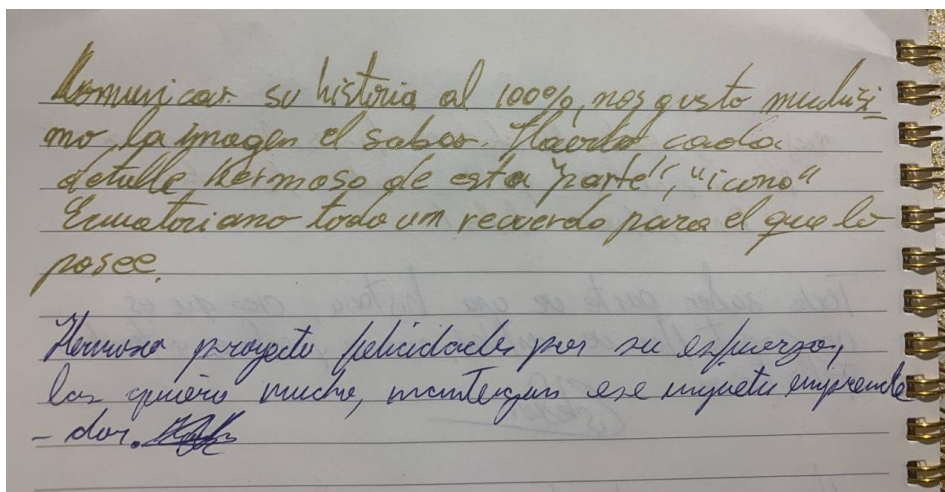 Komunicar su historia al 100%, nos gusto muchisi
mo la imagen el sabor. Hacerlo cada
detalle hermoso de esta "parte", "icono"
Ecuatoriano todo um recuerdo para el que lo
posee.
Hermoso proyecto felicidades por su esfuerzo,
las quiero mucho, mantengan ese impetu emprende
-dor.